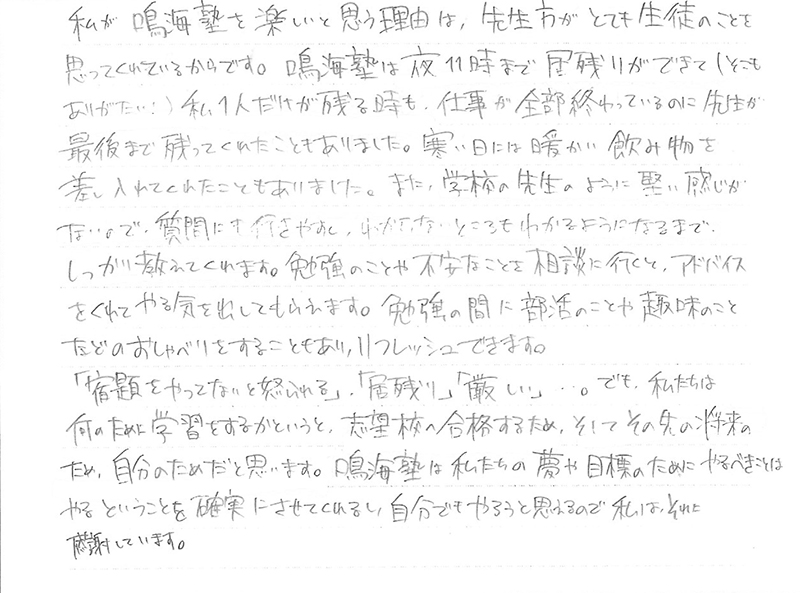 私が鳴海塾を楽しいと思う理由は、先生方がとても生徒のことを
思ってくれているからです。鳴海塾は夜11時まで居残りができて(そこも
ありがたい!)私1人だけが残る時も、仕事が全部終わっているのに先生が
最後まで残ってくれたこともありました。寒い日には暖かい飲み物を
差し入れてくれたこともありました。また、学校の先生のように堅い感じが
ないので、質問にも行きやすし、わからないところもわかるようになるまで、
しっかり教えてくれます。勉強のことや不安なことを相談に行くと、アドバイス
をくれてやる気を出してもらえます。勉強の間に部活のことや趣味のこと
などのおしゃべりをすることもあり、リフレッシュできます。
「宿題をやってないと怒られる」、「居残り」「厳しい」…。でも、私たちは
何のために学習をするかというと、志望校へ合格するため、そしてその先の将来の
ため、自分のためだと思います。鳴海塾は私たちの夢や目標のためにやるべきことは
やるということを確実にさせてくれるし、自分でもやろうと思えるので私は、それに
感謝しています。